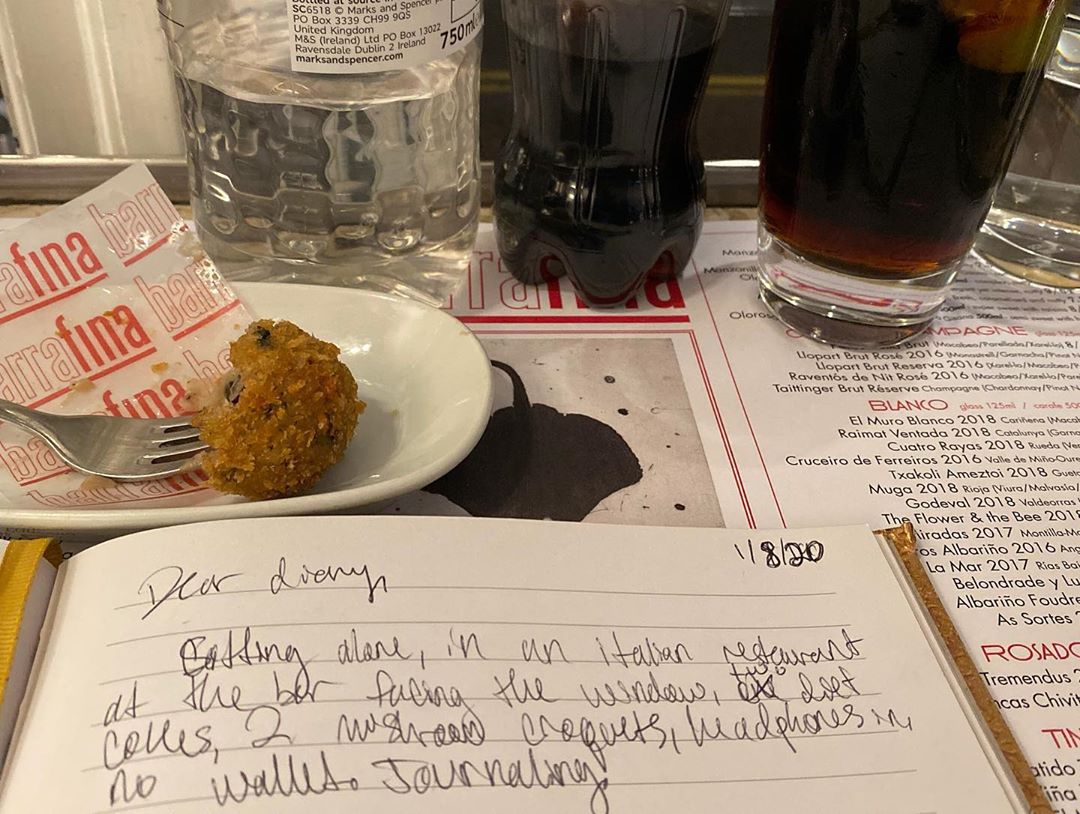 Bottled at source in
SC6518 © Marks and Spencer
PO Box 3339 CH99 9QS
United Kingdom
M&S (Ireland) Ltd PO Box 13022
Ravensdale Dublin 2 Ireland
marksandspencer.com
750ml
barr
rrafina
barr
arrafina
barr
arrafina
ba
barrafina
rrafina
Manzanil
Oloros
MPAGNE glass 125ml
Brut (Macabeo/Parellada/Xarel·lo) 8/
Llopart Brut Rosé 2016 (Monastrell/Garnacha/Pinot N
Llopart Brut Reserva 2016 (Xarel·lo/Macabeo/Pare
Raventós de Nit Rosé 2016 (Macabeo/Xarel·lo/Pare
Taittinger Brut Réserve Champagne (Chardonnay/Pinot N
BLANCO glass 125ml / carafe 500
El Muro Blanco 2018 Cariñena (Macab
Raimat Ventada 2018 Catalunya (Garna
Cuatro Rayas 2018 Rueda (Ver
Cruceiro de Ferreiros 2016 Valle de Miño-Oure
Txakoli Ameztoi 2018 Gueta
Muga 2018 Rioja (Viura/Malvasia/
Godeval 2018 Valdeorras
The Flower & the Bee 2018
iradas 2017 Montilla-Mo
os Albariño 2016 Ang
La Mar 2017 Rias Bai
Belondrade y Lu
Albariño Foudre
As Sortes 2
ROSADO
Tremendus 2
ncas Chivit
TIN
atido
iña
1/8/20
Dear diary,
Eatting alone, in an italian restaurant
at the bar facing the window, two diet
cokes, 2 mushroom croquets, headphones in,
no wallet. Journaling